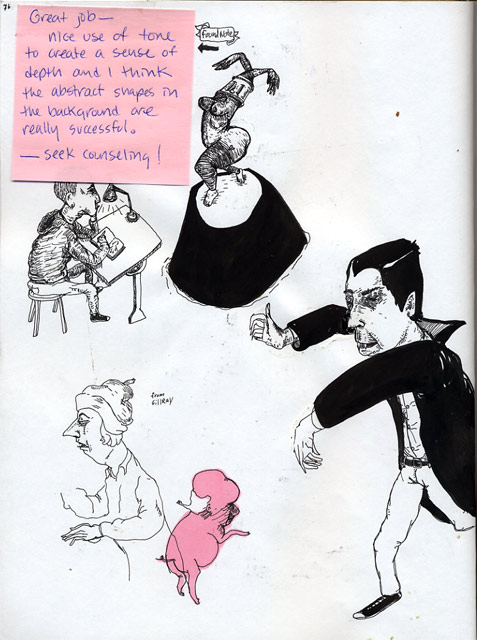 76
Great job—
nice use of tone
to create a sense of
depth and I think
the abstract shapes in
the background are
really successful.
— seek counseling!
Found Note
from
Gillray